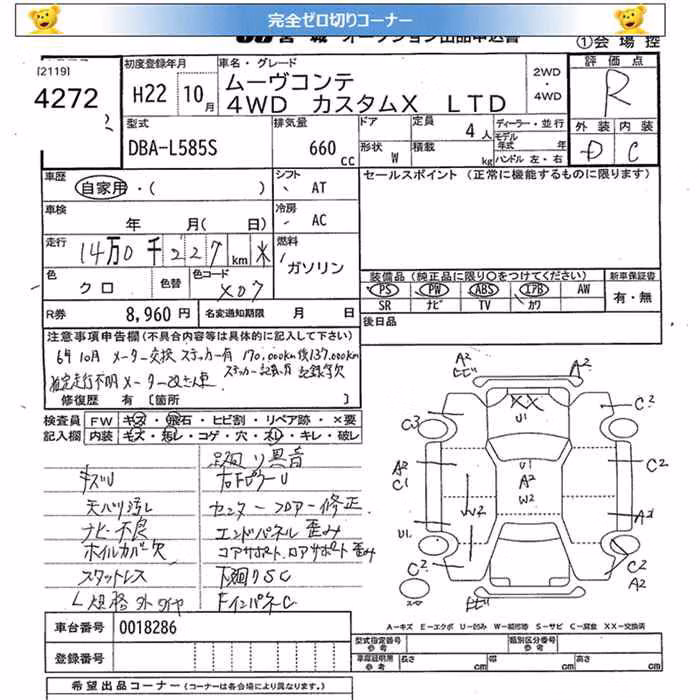 完全ゼロ切りコーナー
JU 宮城 オークション出品申込書
①会場控
[2119]
4272
初度登録年月
H22 10月
車名・グレード
ムーヴコンテ
4WD カスタムX LTD
2WD
4WD
評価点
R
外装 内装
D C
型式
DBA-L585S
排気量
660 cc
ドア
形状 W
定員 4人
積載 kg
ディーラー・並行
モデル年式 年式
ハンドル 左・右
車歴
自家用・( )
シフト
AT
セールスポイント (正常に機能するものに限ります)
車検
年 月( 日)
冷房
AC
走行
14万0千227km ※
燃料
ガソリン
色
クロ
色替
色コード
X07
装備品 (純正品に限り○をつけてください)
PS PW ABS エアB AW
SR ナビ TV カワ
新車保証書
有・無
R券 8,960円
名変通知期限 月 日
後日品
注意事項申告欄(不具合内容等は具体的に記入して下さい)
6年10月 メーター交換 ステッカー有 170,000km後137,000km
ステッカー記載有 記録簿欠
推定走行不明 メーター改ざん車
修復歴 有 [箇所 ]
検査員 FW キズ・飛石・ヒビ割・リペア跡・×要
記入欄 内装 キズ・汚レ・コゲ・穴・スレ・キレ・破レ
足廻り異音
キズU
右FピラーU
天バリ汚レ
センターフロアー修正
ナビ不良
エンドパネル歪み
ホイルカバ欠
コアサポート、ロアサポート歪み
スタットレス
下廻りSC
規格外タイヤ
FインパネC
A2
ヒビ
A2
C3
XX
U1
C2
A2
C1
U1
A2
W2
C2
W2
A2
U1
C2
C2
A2
ヒビ
A-キズ E-エクボ U-凹み W-補修跡 S-サビ C-腐食 XX-交換済
車台番号 0018286
登録番号
型式指定番号 参考
類別区分番号 参考
車庫証明用 参考 長さ cm 巾 cm 高さ cm
希望出品コーナー (コーナーは各会場により異なります。)